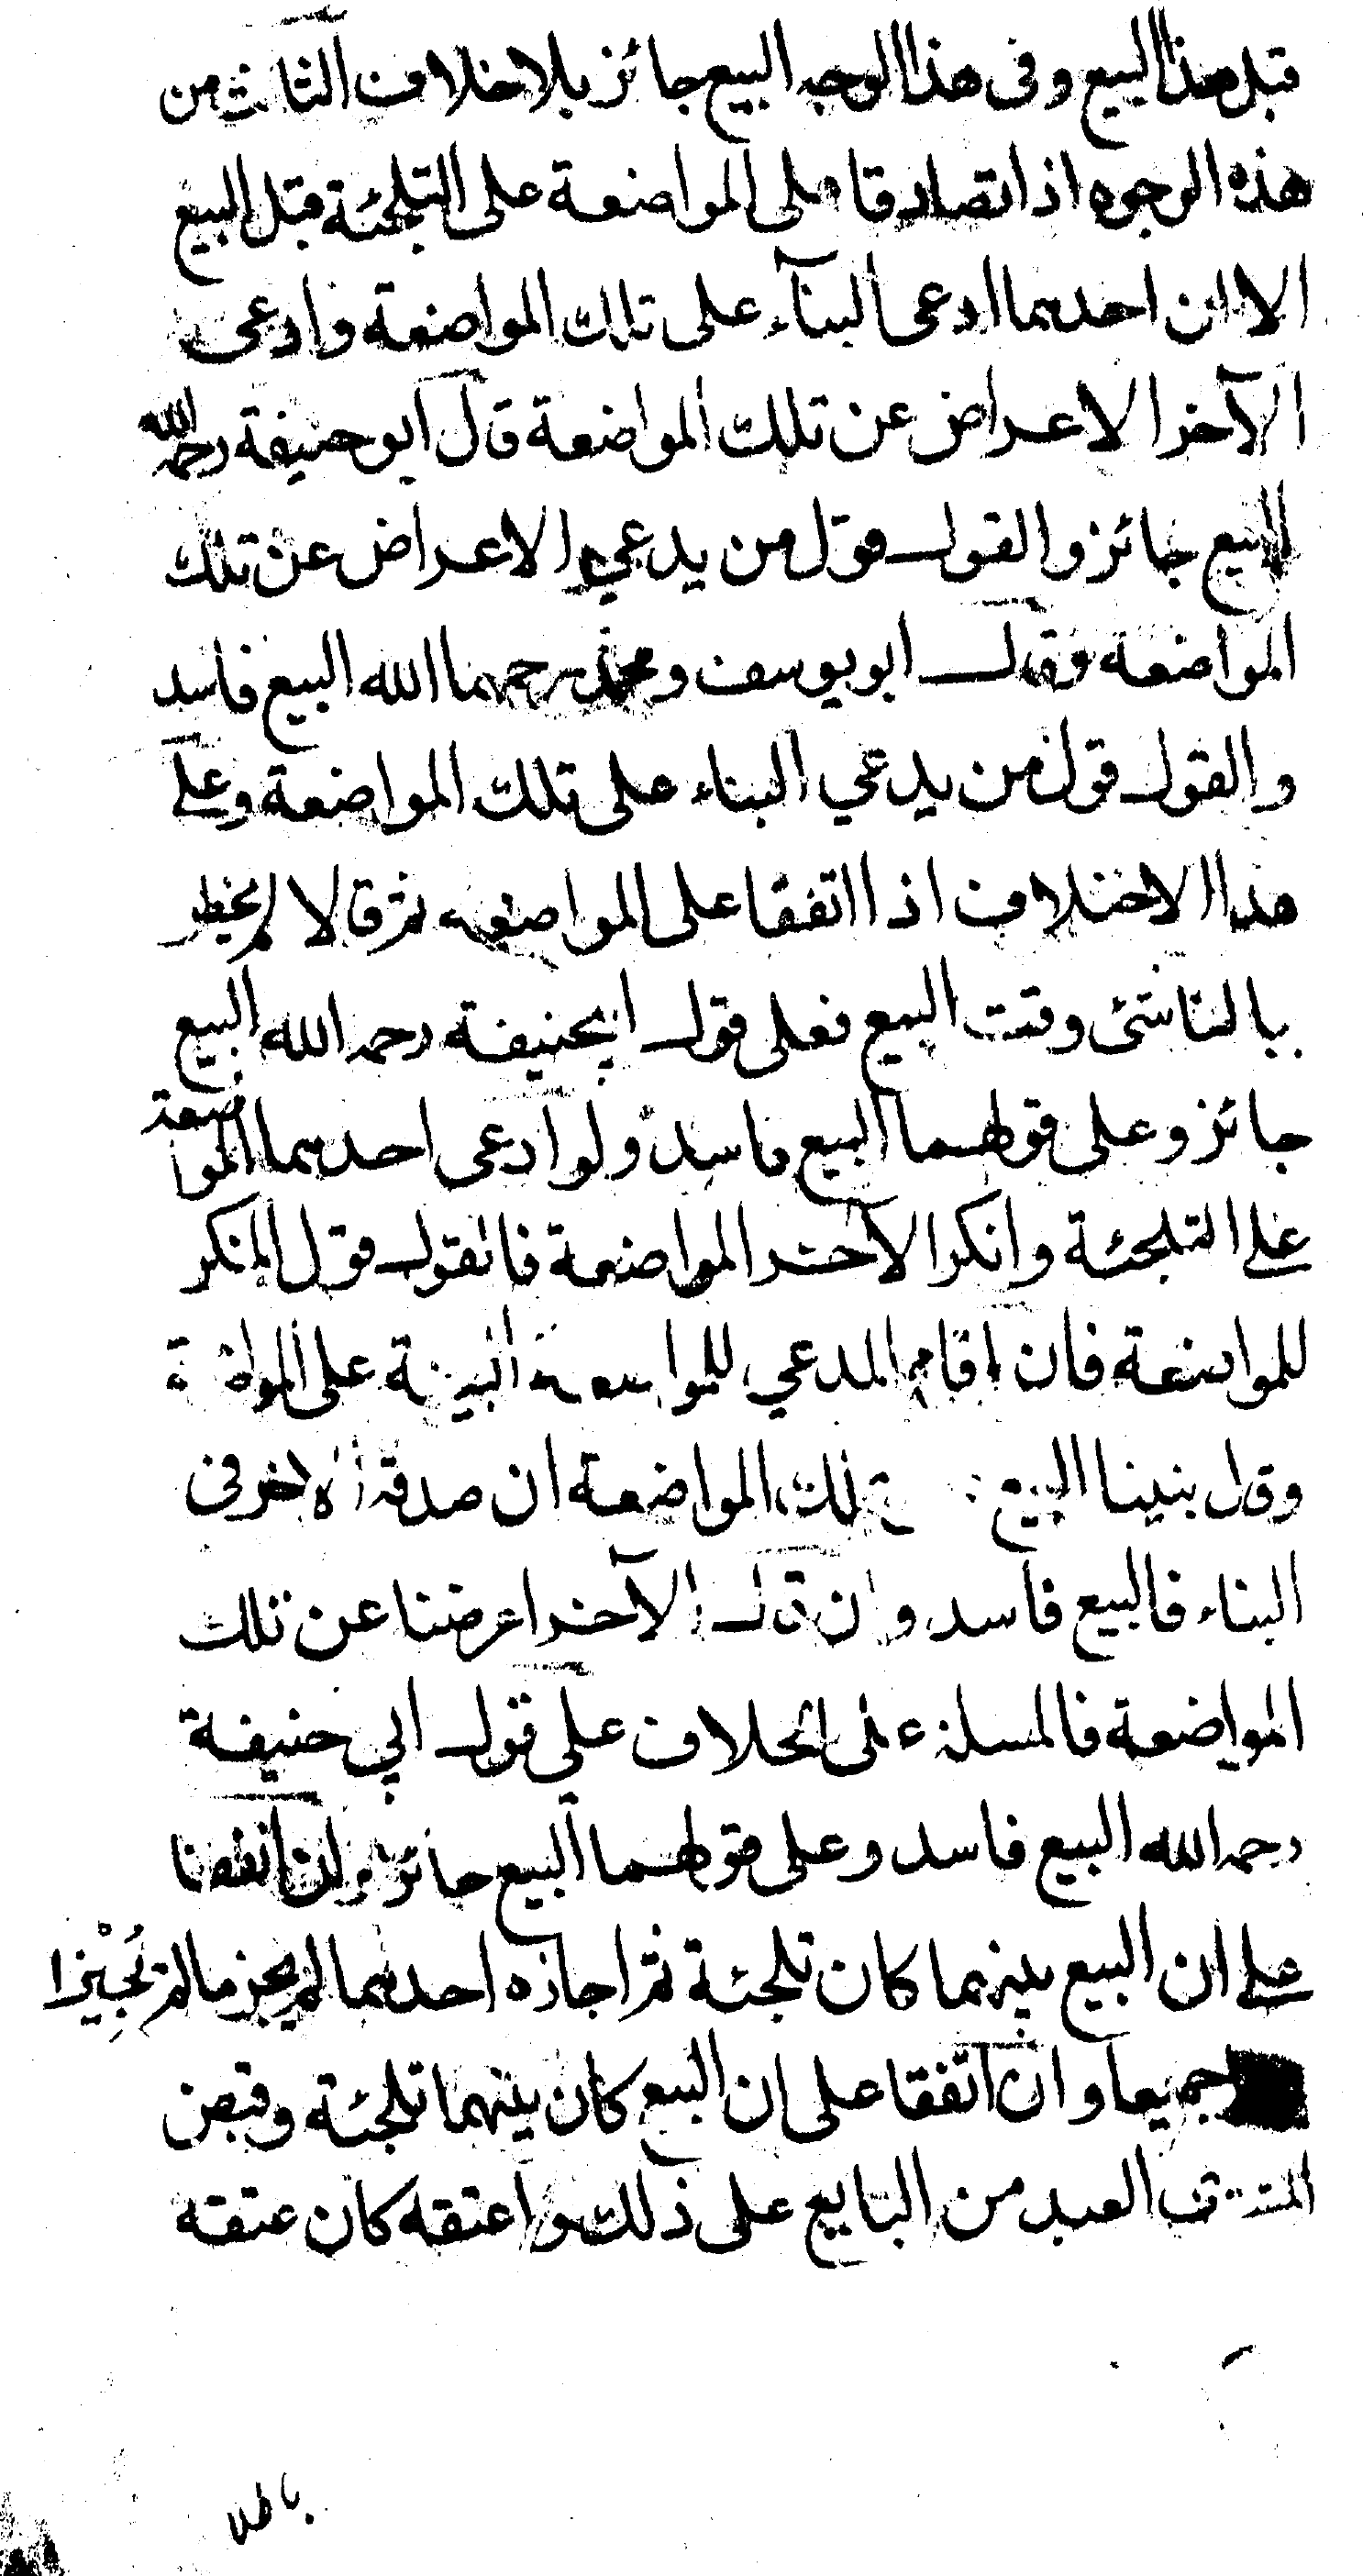 قبل هذا البيع وفى هذا الوجه البيع جائز بلا خلاف الثالث من
هذه الوجوه اذا تصادقا على المواضعة على التلجئة قبل البيع
الا ان احدهما ادعى البنآء على تلك المواضعة وادعى
الآخر الاعراض عن تلك المواضعة قال ابو حنيفة رحمه الله
البيع جائز والقول قول من يدعي الاعراض عن تلك
المواضعة وقال ابو يوسف ومحمد رحمهما الله البيع فاسد
والقول قول من يدعي البناء على تلك المواضعة وعلى
هذا الاختلاف اذا اتفقا على المواضعه ثم قالا لم يخطر
ببالنا شئ وقت البيع فعلى قول ابيحنيفة رحمه الله البيع
جائز وعلى قولهما البيع فاسد ولو ادعى احدهما المواضعة
على التلجئة وانكر الآخر المواضعة فالقول قول المنكر
للمواضعة فان اقام المدعي للمواضعة البينة على المواضعة
وقال بنينا البيع تلك المواضعة ان صدقه الاخر فى
البناء فالبيع فاسد وان قال الآخر اعرضنا عن تلك
المواضعة فالمسلة على الخلاف على قول ابي حنيفة
رحمه الله البيع فاسد وعلى قولهما البيع جائز وان اتفقا
على ان البيع بينهما كان تلجئة ثم اجازه احدهما لم يجز مالم يُجِيْزا
جميعا وان اتفقا على ان البيع كان بينهما تلجئة وقبض
المشتري العبد من البايع على ذلك واعتقه كان عتقه
باطلا